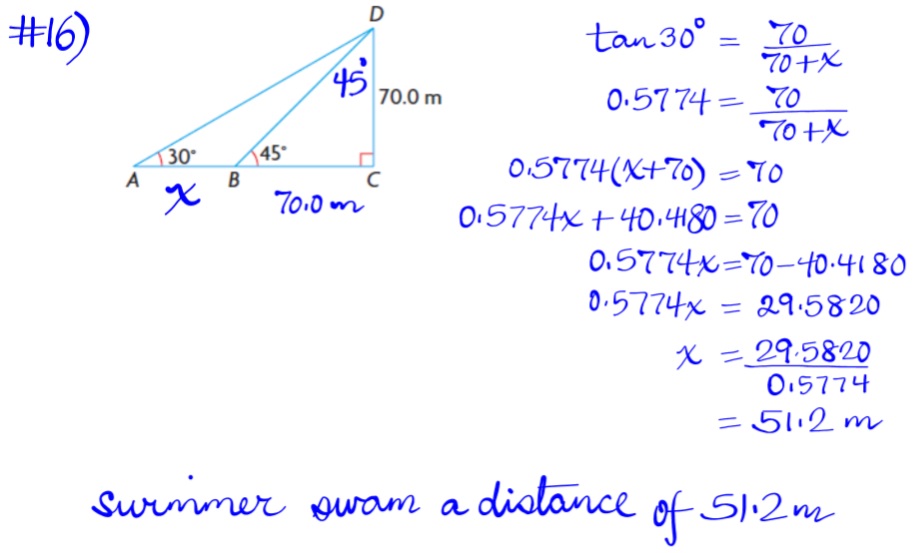 #16)
D
45°
70.0 m
30°
45°
A
x
B
70.0 m
C
tan 30° = 70/70+x
0.5774 = 70/70+x
0.5774(x+70) = 70
0.5774x + 40.4180 = 70
0.5774x = 70-40.4180
0.5774x = 29.5820
x = 29.5820/0.5774
= 51.2 m
swimmer swam a distance of 51.2 m